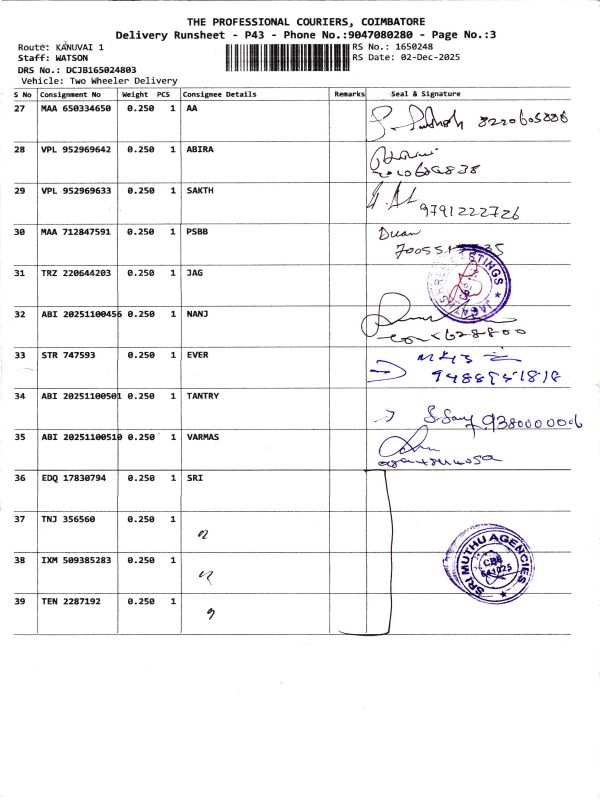 THE PROFESSIONAL COURIERS, COIMBATORE
Delivery Runsheet - P43 - Phone No.:9047080280 - Page No.:3
Route: KANUVAI 1
RS No.: 1650248
Staff: WATSON
RS Date: 02-Dec-2025
DRS No.: DCJB165024803
Vehicle: Two Wheeler Delivery
S No Consignment No Weight PCS Consignee Details Remarks Seal & Signature
27 MAA 650334650 0.250 1 AA 8220605886
28 VPL 952969642 0.250 1 ABIRA
29 VPL 952969633 0.250 1 SAKTH 9791222726
30 MAA 712847591 0.250 1 PSBB
31 TRZ 220644203 0.250 1 JAG
32 ABI 20251100456 0.250 1 NANJ
33 STR 747593 0.250 1 EVER
34 ABI 20251100501 0.250 1 TANTRY
35 ABI 20251100510 0.250 1 VARMAS
36 EDQ 17830794 0.250 1 SRI
37 TNJ 356560 0.250 1
38 IXM 509385283 0.250 1
SRI MUTHU AGENCIES
CBE
641025
39 TEN 2287192 0.250 1